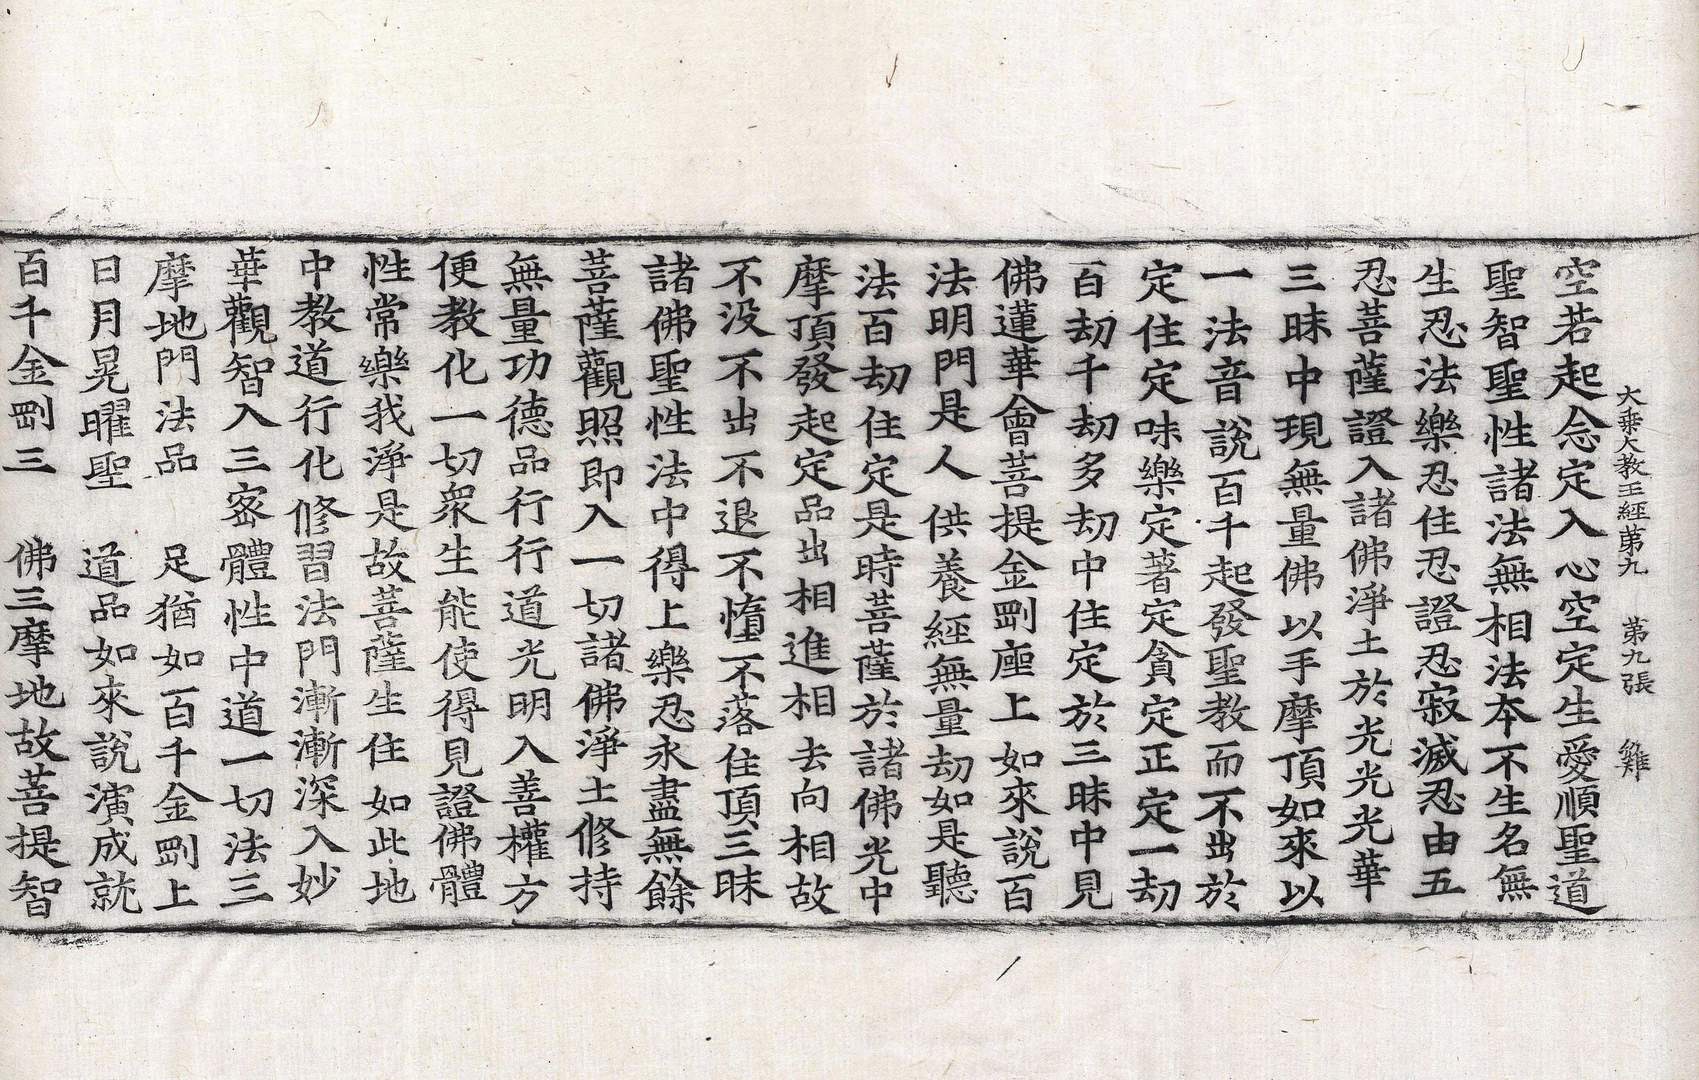 大乗大教王經第九　第九張　雞
空若起念定入心空定生愛順聖道
聖智聖性諸法無相法本不生名無
生忍法樂忍住忍證忍寂滅忍由五
忍菩薩證入諸佛淨土於光光光華
三昧中現無量佛以手摩頂如來以
一法音說百千起發聖教而不出於
定住定味樂定著定貪定正定一劫
百劫千劫多劫中住定於三昧中見
佛蓮華會菩提金剛座上如來說百
法明門是人供養經無量劫如是聽
法百劫住定是時菩薩於諸佛光中
摩頂發起定品出相進相去向相故
不没不出不退不惰不落住頂三昧
諸佛聖性法中得上樂忍永盡無餘
菩薩觀照即入一切諸佛淨土修持
無量功德品行行道光明入善權方
便教化一切衆生能使得見證佛體
性常樂我淨是故菩薩生住如此地
中教道行化修習法門漸漸深入妙
華觀智入三密體性中道一切法三
摩地門法品　足猶如百千金剛上
日月晃曜聖　道品如來說演成就
百千金剛三　佛三摩地故菩提智